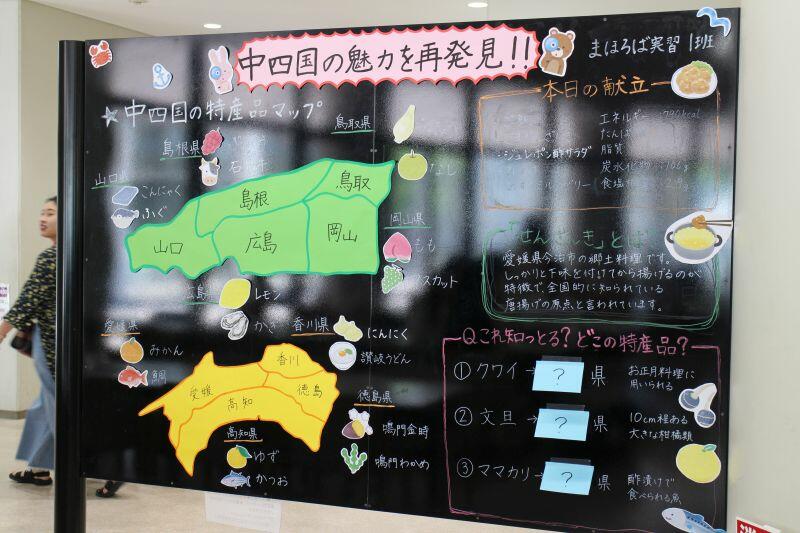 中四国の魅力を再発見!!
まほろば実習 1班
★中四国の特産品マップ
島根県
鳥取県
なし
山口県
こんにゃく
ふぐ
岡山県
もも
広島
レモン
かき
島根
鳥取
山口
広島
岡山
愛媛県
みかん
鯛
香川県
にんにく
讃岐うどん
徳島県
鳴門金時
鳴門わかめ
高知県
ゆず
かつお
香川
愛媛
徳島
高知
本日の献立
エネルギー
たんぱ
脂質
炭水化物
食塩
「せんざんき」とは
愛媛県今治市の郷土料理です。
しっかりと下味を付けてから揚げるのが
特徴で、全国的に知られている
唐揚げの原点と言われています。
Qこれ知っとる?どこの特産品?
①クワイ→ ? 県
お正月料理に
用いられる
②文旦→ ? 県
10cm程ある
大きな柑橘類
③ママカリ→ ? 県
酢漬けで
食べられる魚